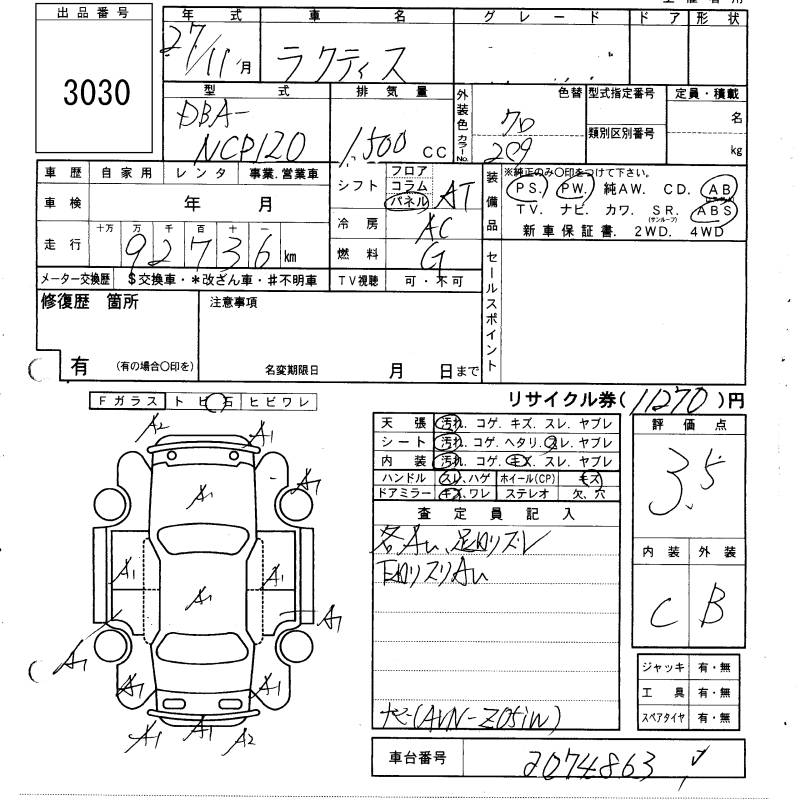 出品番号
3030
年式 車名 グレード ドア 形状
27/11月 ラクティス
型式 排気量 外装色 カラーNo. 色替 型式指定番号 定員・積載
DBA-
NCP120 1,500 CC クロ 209 類別区別番号 名 kg
車歴 自家用 レンタ 事業.営業車
車検 年 月
走行 十万 万 千 百 十 一
92736 km
メーター交換歴 $交換車・*改ざん車・#不明車
シフト フロア コラム パネル AT
冷房 AC
燃料 G
TV視聴 可・不可
装備品 ※純正のみ〇印をつけて下さい。
PS. PW. 純AW. CD. AB
TV. ナビ. カワ. SR.(サンルーフ) ABS
新車保証書. 2WD. 4WD
セールスポイント
修復歴 箇所
有 (有の場合〇印を)
注意事項
名変期限日 月 日まで
リサイクル券(11270)円
Fガラス トビ石 ヒビワレ
A2 A1
A1
A1 A1
A1
A1 A1
A1 A1
A1 A1 A2
天張 汚れ.コゲ.キズ.スレ.ヤブレ
シート 汚れ.コゲ.ヘタリ.スレ.ヤブレ
内装 汚れ.コゲ.キズ.スレ.ヤブレ
ハンドル スレ.ハゲ ホイール(CP) キズ
ドアミラー キズ.ワレ ステレオ 欠.穴
査定員記入
各AU、足切りスレ
下切りスリAU
ナビ(AVN-Z05iW)
評価点
3.5
内装 外装
C B
ジャッキ 有・無
工具 有・無
スペアタイヤ 有・無
車台番号 2074863